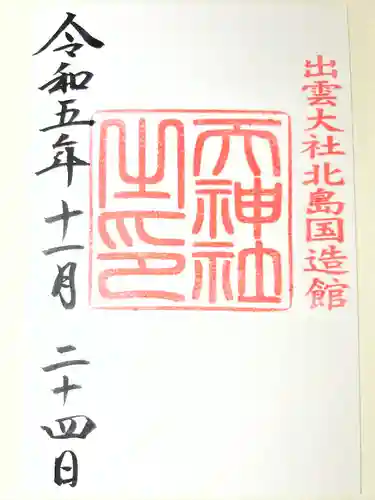 出雲大社北島国造館
天神社之印
令和五年十一月 二十四日